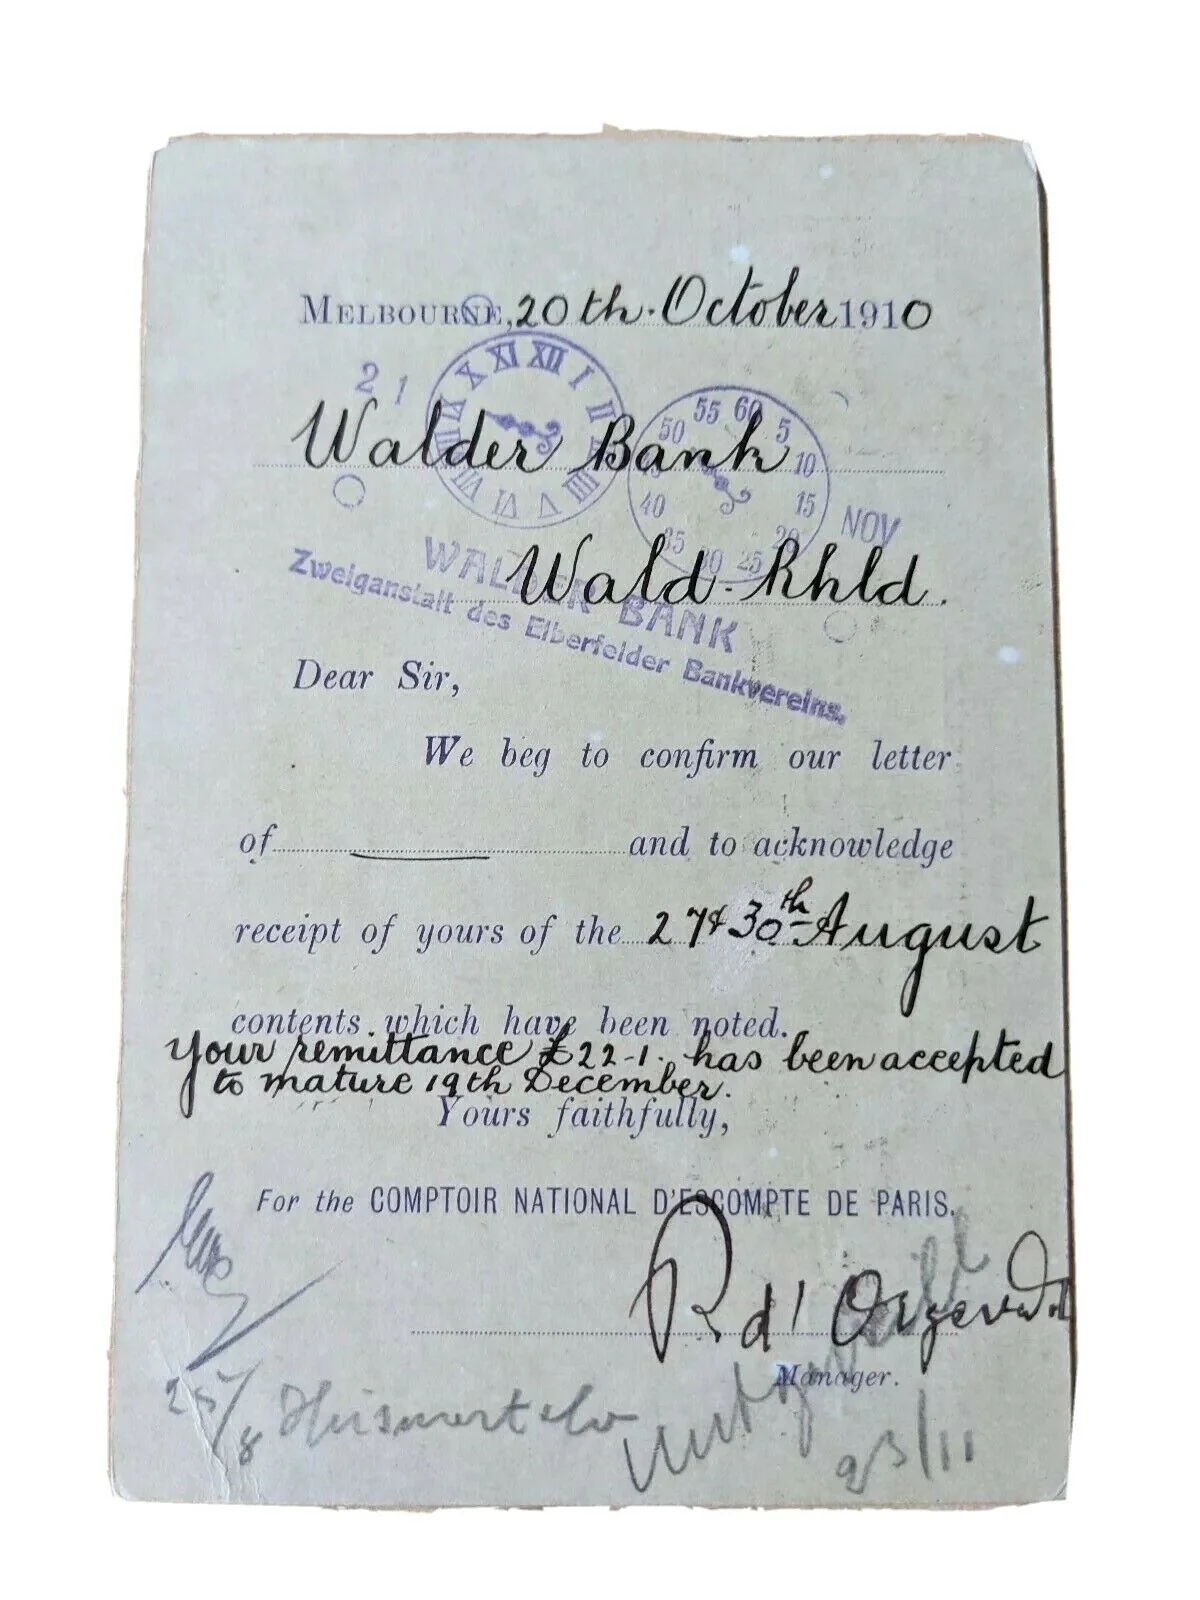 MELBOURNE, 20th. October 1910
21
XI XII I II III V VI VII IX X
55 60 5 10 15 20 25 30 35 40 50
NOV
Walder Bank
Wald. Rhld.
WALDER BANK
Zweiganstalt des Elberfelder Bankvereins.
Dear Sir,
We beg to confirm our letter
of and to acknowledge
receipt of yours of the 27 & 30th August
contents which have been noted.
Your remittance £22-1. has been accepted
to mature 19th December.
Yours faithfully,
For the COMPTOIR NATIONAL D'ESCOMPTE DE PARIS.
R d'
Manager.
25/8
23/11